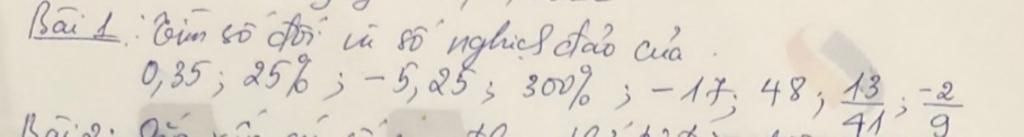 Bài 1: Tìm số đối và số nghịch đảo của
0,35; 25%; -5,25; 300%; -17; 48; 13/41; -2/9
Bài 2: